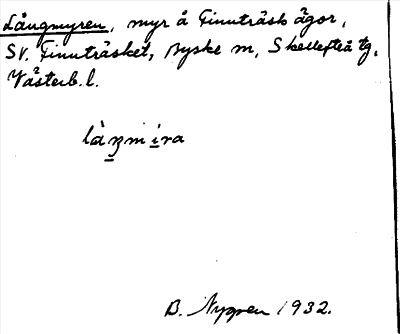 Långmyren, myr å Finnträsk ägor,
SV. Finnträsket, Byske sn, Skellefteå tg.
Västerb. l.
làŋmira
B. Nygren 1932.